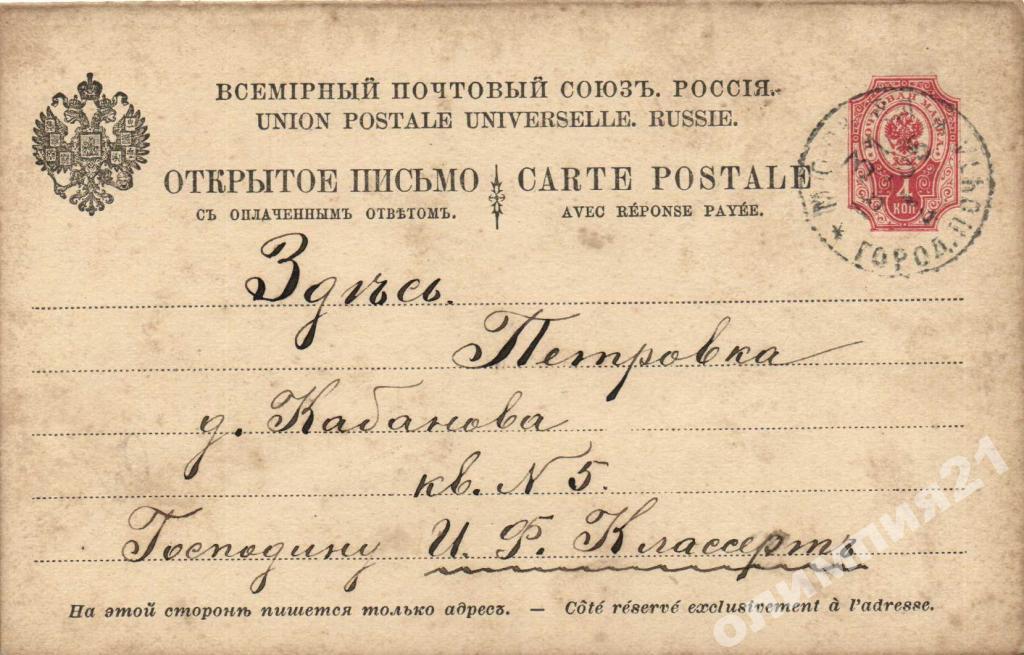 ВСЕМІРНЫЙ ПОЧТОВЫЙ СОЮЗЪ. РОССІЯ.
UNION POSTALE UNIVERSELLE. RUSSIE.
ОТКРЫТОЕ ПИСЬМО CARTE POSTALE
СЪ ОПЛАЧЕННЫМЪ ОТВѢТОМЪ. AVEC RÉPONSE PAYÉE.
4
КОП
ГОРОД. ПОЧТА
Здѣсь.
Петровка
д. Кабанова
кв. N 5.
Господину И. Ф. Классертъ
На этой сторонѣ пишется только адресъ. — Côté réservé exclusivement à l'adresse.
олимпия21